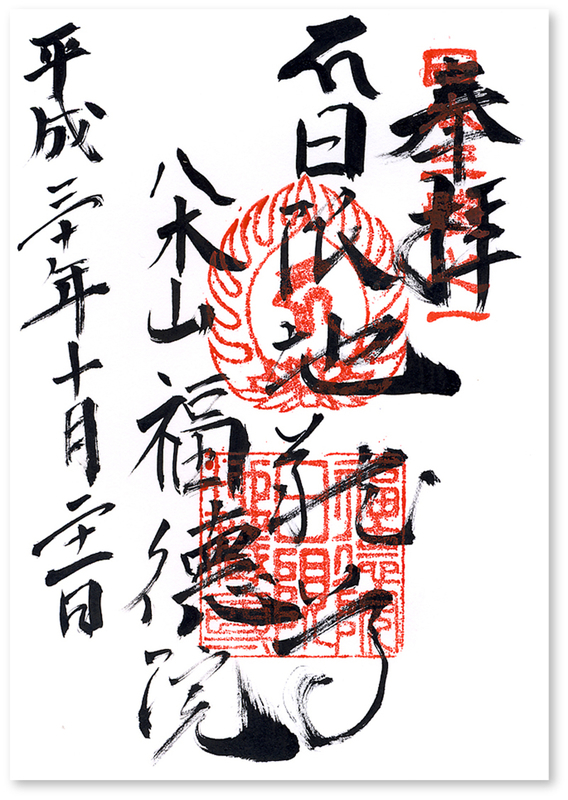 奉拝
日限地蔵尊
八木山 福徳院
平成三十年十月二十一日